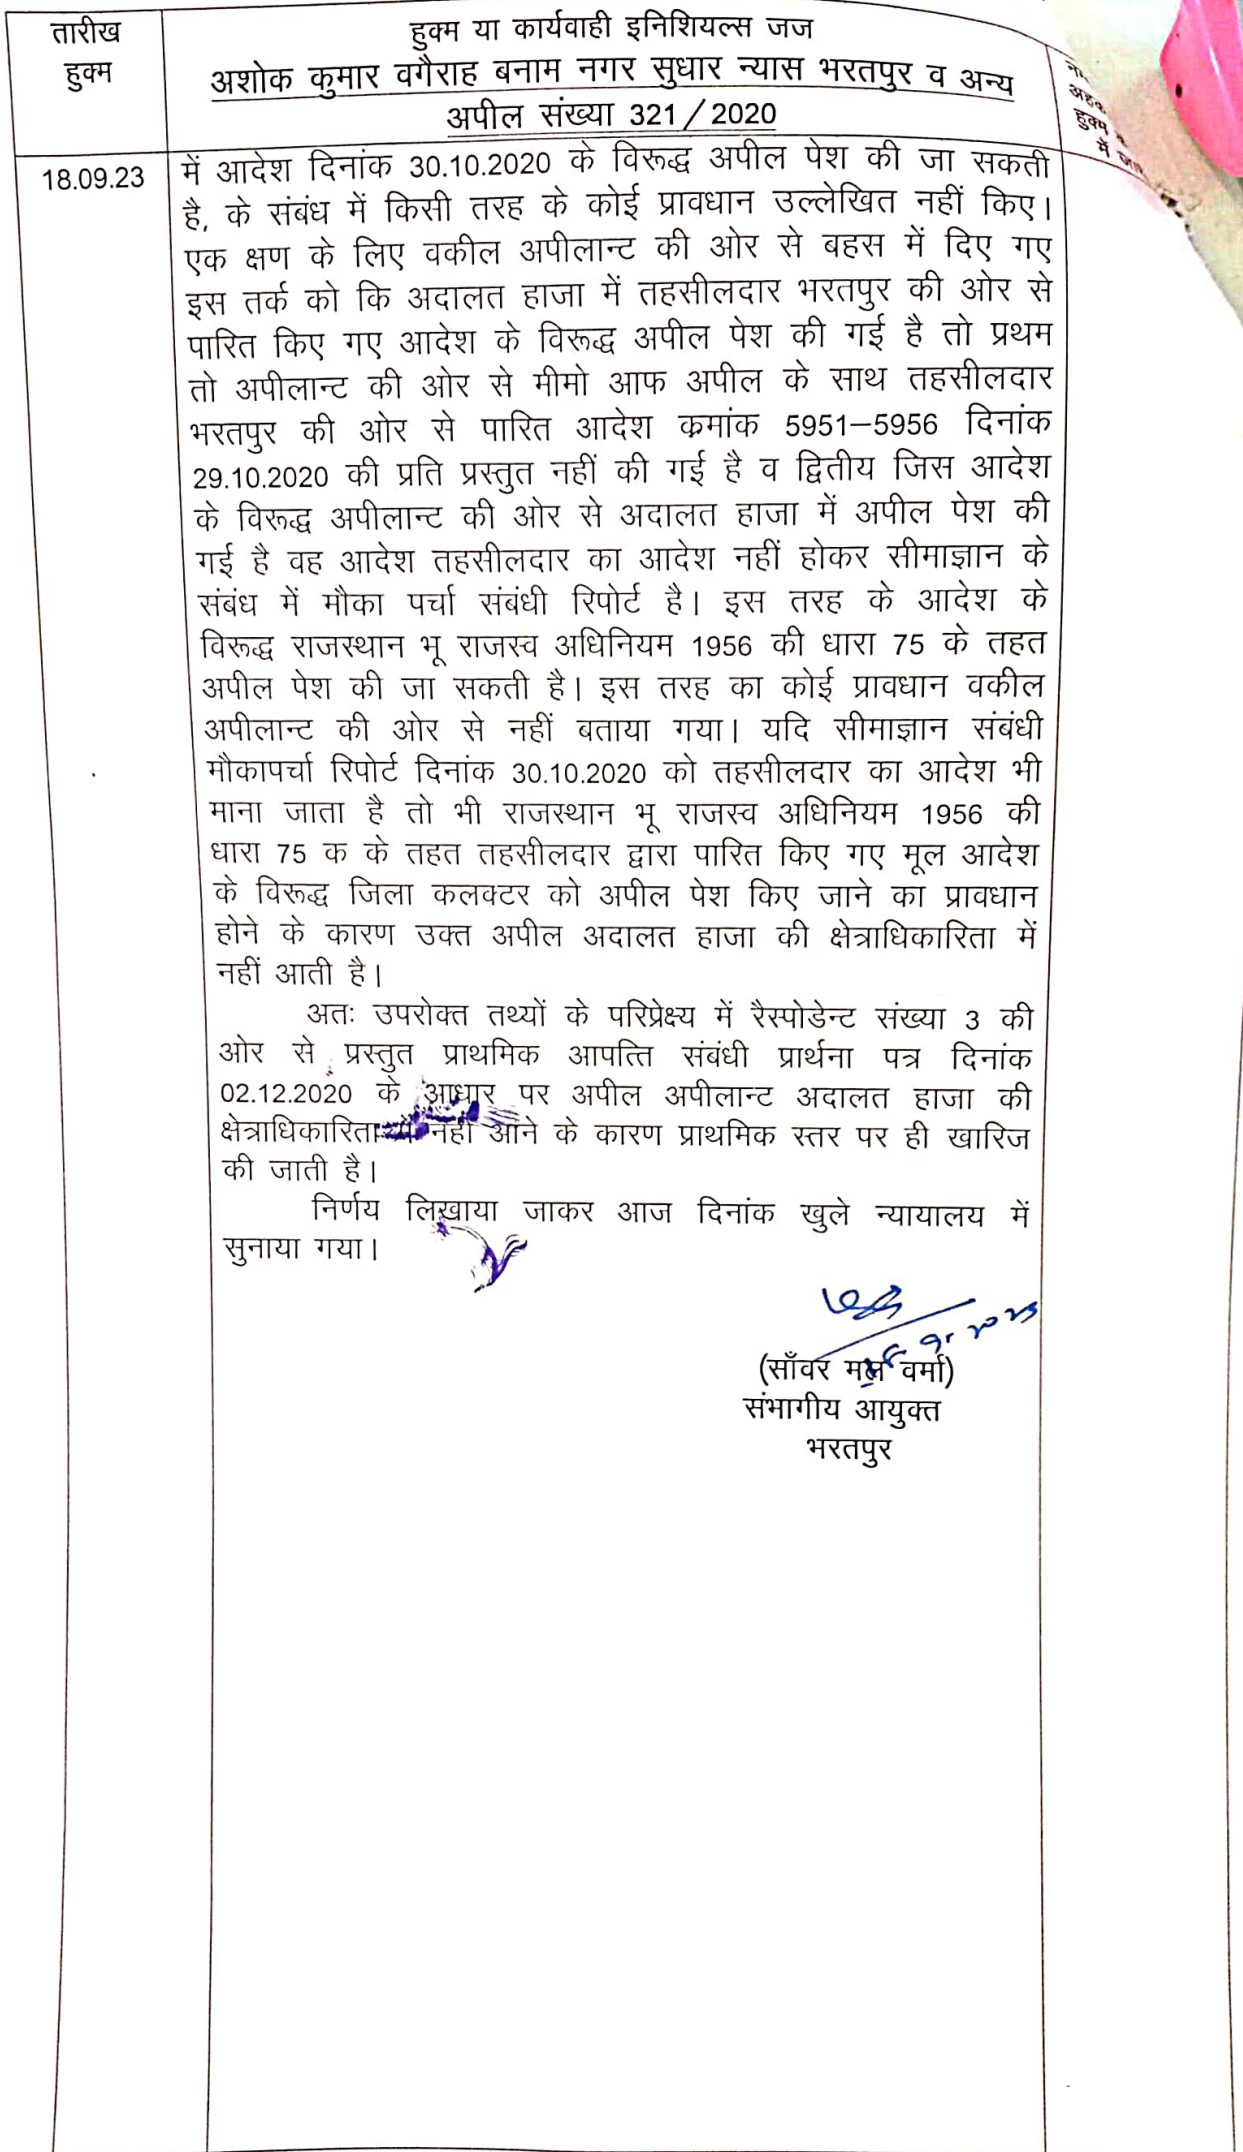 तारीख
हुक्म
हुक्म या कार्यवाही इनिशियल्स जज
अशोक कुमार वगैराह बनाम नगर सुधार न्यास भरतपुर व अन्य
अपील संख्या 321/2020
हुक्म
में
18.09.23
में आदेश दिनांक 30.10.2020 के विरूद्ध अपील पेश की जा सकती
है, के संबंध में किसी तरह के कोई प्रावधान उल्लेखित नहीं किए।
एक क्षण के लिए वकील अपीलान्ट की ओर से बहस में दिए गए
इस तर्क को कि अदालत हाजा में तहसीलदार भरतपुर की ओर से
पारित किए गए आदेश के विरूद्ध अपील पेश की गई है तो प्रथम
तो अपीलान्ट की ओर से मीमो आफ अपील के साथ तहसीलदार
भरतपुर की ओर से पारित आदेश क्रमांक 5951–5956 दिनांक
29.10.2020 की प्रति प्रस्तुत नहीं की गई है व द्वितीय जिस आदेश
के विरूद्ध अपीलान्ट की ओर से अदालत हाजा में अपील पेश की
गई है वह आदेश तहसीलदार का आदेश नहीं होकर सीमाज्ञान के
संबंध में मौका पर्चा संबंधी रिपोर्ट है। इस तरह के आदेश के
विरूद्ध राजस्थान भू राजस्व अधिनियम 1956 की धारा 75 के तहत
अपील पेश की जा सकती है। इस तरह का कोई प्रावधान वकील
अपीलान्ट की ओर से नहीं बताया गया। यदि सीमाज्ञान संबंधी
मौकापर्चा रिपोर्ट दिनांक 30.10.2020 को तहसीलदार का आदेश भी
माना जाता है तो भी राजस्थान भू राजस्व अधिनियम 1956 की
धारा 75 क के तहत तहसीलदार द्वारा पारित किए गए मूल आदेश
के विरूद्ध जिला कलक्टर को अपील पेश किए जाने का प्रावधान
होने के कारण उक्त अपील अदालत हाजा की क्षेत्राधिकारिता में
नहीं आती है।
अतः उपरोक्त तथ्यों के परिप्रेक्ष्य में रैस्पोडेन्ट संख्या 3 की
ओर से प्रस्तुत प्राथमिक आपत्ति संबंधी प्रार्थना पत्र दिनांक
02.12.2020 के आधार पर अपील अपीलान्ट अदालत हाजा की
क्षेत्राधिकारिता में नहीं आने के कारण प्राथमिक स्तर पर ही खारिज
की जाती है।
निर्णय लिखाया जाकर आज दिनांक खुले न्यायालय में
सुनाया गया।
(साँवर मल वर्मा)
संभागीय आयुक्त
भरतपुर